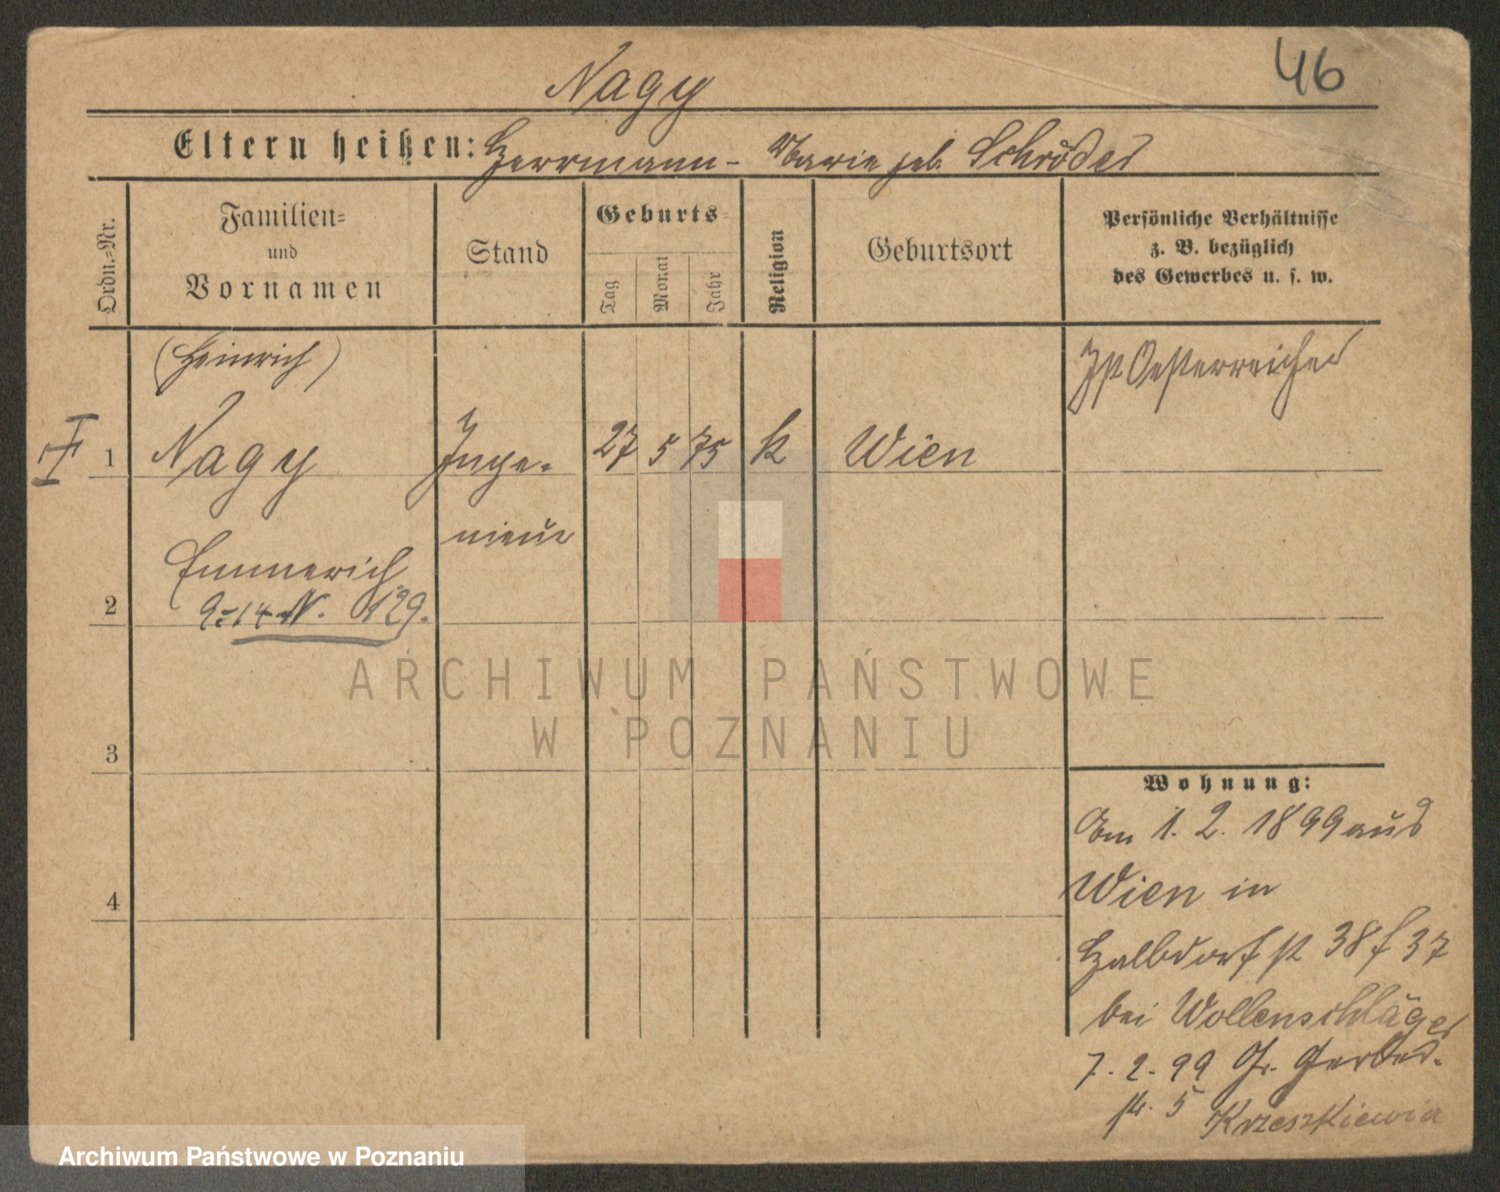 46
Nagy
Eltern heißen: Herrmann - Marie geb. Schröder
Ordn.=Nr.
Familien=
und
Vornamen
Stand
Geburts=
Tag
Monat
Jahr
Religion
Geburtsort
Persönliche Verhältnisse
z. B. bezüglich
des Gewerbes u. s. w.
(Heinrich)
Ist Oesterreicher
I 1 Nagy Inge- 27 5 75 k Wien
nieur
Emmerich
2
3
4
Wohnung:
Am 1. 2. 1899 aus
Wien in
Halbdorfst 38 f 37
bei Wollenschläger
7. 2. 99 Gr. Gerber-
str. 5
ARCHIWUM PAŃSTWOWE
W POZNANIU
Archiwum Państwowe w Poznaniu